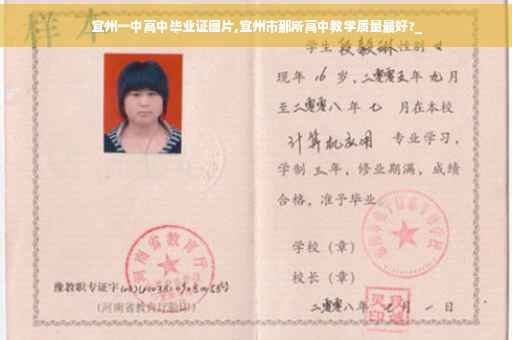 宜州一中高中毕业证图片,宜州市那所高中教学质量最好?_
样本
学生段毅琳性别女
现年16岁,二零零五年九月
至二零零八年七月在本校
计算机应用 专业学习,
学制三年,修业期满,成绩
合格,准予毕业
学校(章)
校长(章)
二零零八年 月一日
河南省教育厅
豫教职专证字
(河南省教育厅验印)